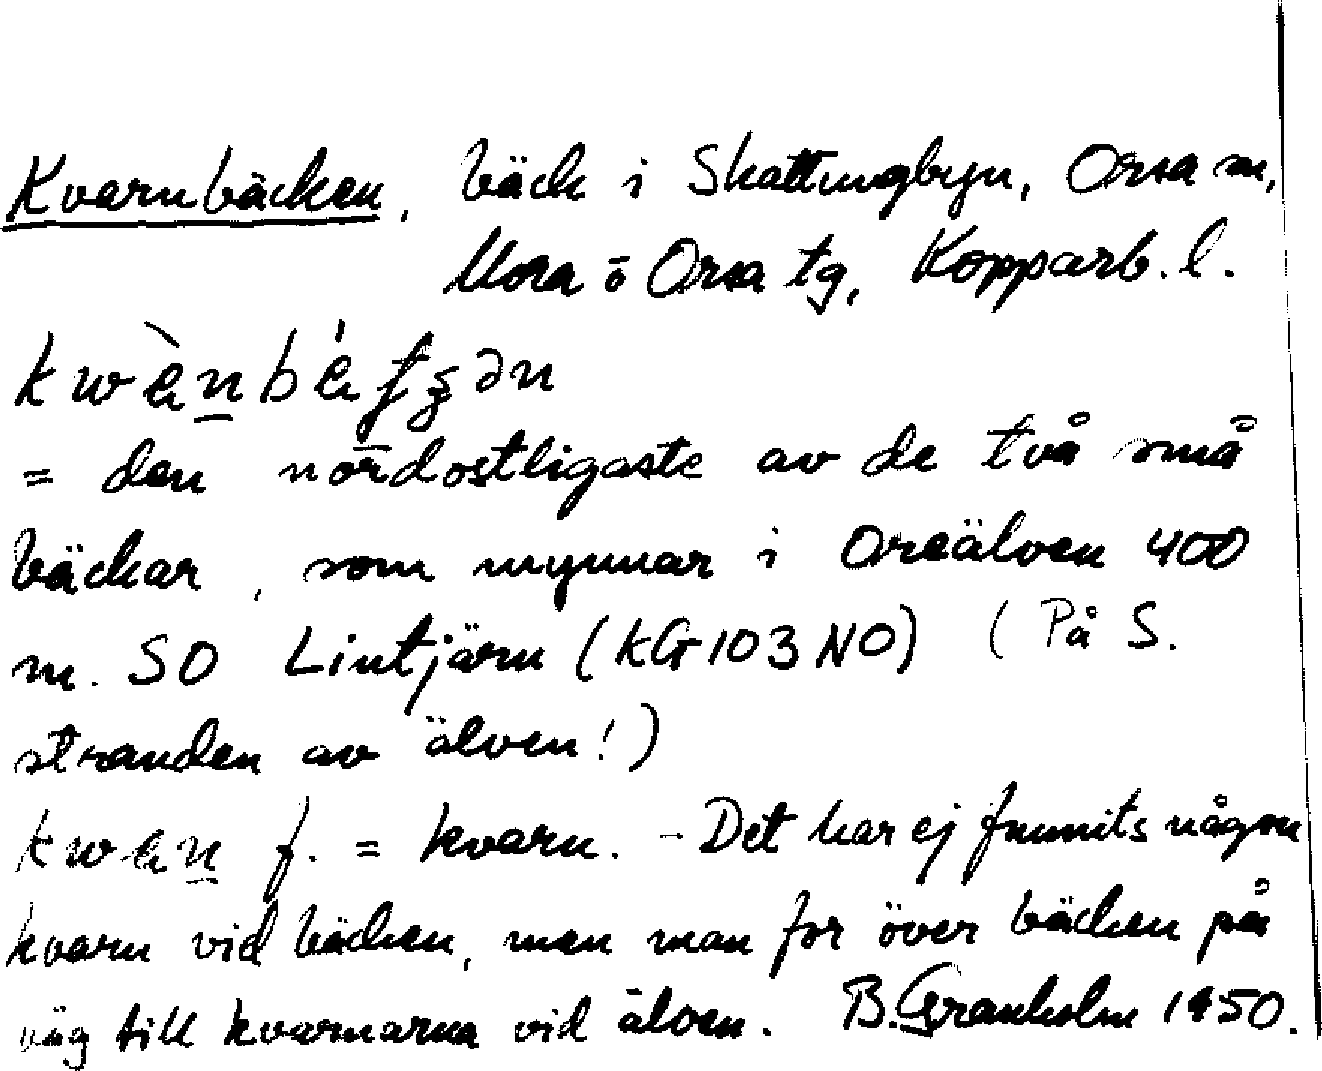 Kvarnbäcken, bäck i Skattungbyn, Orsa sn,
Mora o Orsa tg, Kopparb. l.
= den nordostligaste av de två små
bäckar, som mynnar i Oreälven 400
m. SO Lintjärn (KG 103 NO) (På S.
stranden av älven!)
f. = kvarn. - Det har ej funnits någon
kvarn vid bäcken, men man for över bäcken på
väg till kvarnarna vid älven. B. Granholm 1950.